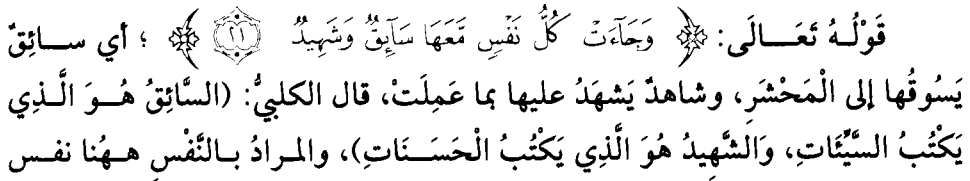 قَوْلُهُ تَعَالَى: ﴿ وَجَآءَتْ كُلُّ نَفْسٍ مَّعَهَا سَآئِقٌ وَشَهِيدٌ ﴿٢١﴾ ﴾ ؛ أي سائِقٌ
يَسُوقُها إلى الْمَحْشَرِ، وشاهدٌ يَشهَدُ عليها بما عَمِلَتْ، قال الكلبيُّ: (السَّائِقُ هُوَ الَّذِي
يَكْتُبُ السَّيِّئَاتِ، وَالشَّهِيدُ هُوَ الَّذِي يَكْتُبُ الْحَسَنَاتِ)، والمرادُ بالنَّفْسِ ههُنا نفس